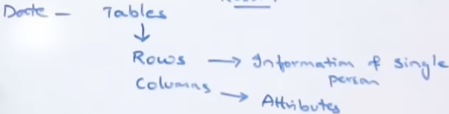 Date - Tables
↓
Rows → Information of single person
Columns → Attributes